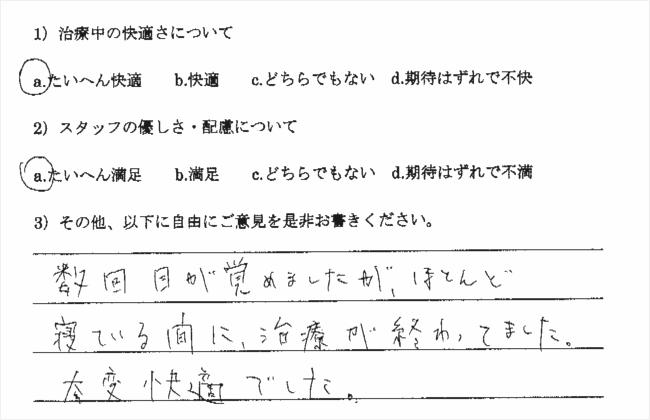 1) 治療中の快適さについて
a.たいへん快適 b.快適 c.どちらでもない d.期待はずれで不快
2) スタッフの優しさ・配慮について
a.たいへん満足 b.満足 c.どちらでもない d.期待はずれで不満
3) その他、以下に自由にご意見を是非お書きください。
数回目が覚めましたが、ほとんど
寝ている間に、治療が終わってました。
大変快適でした。